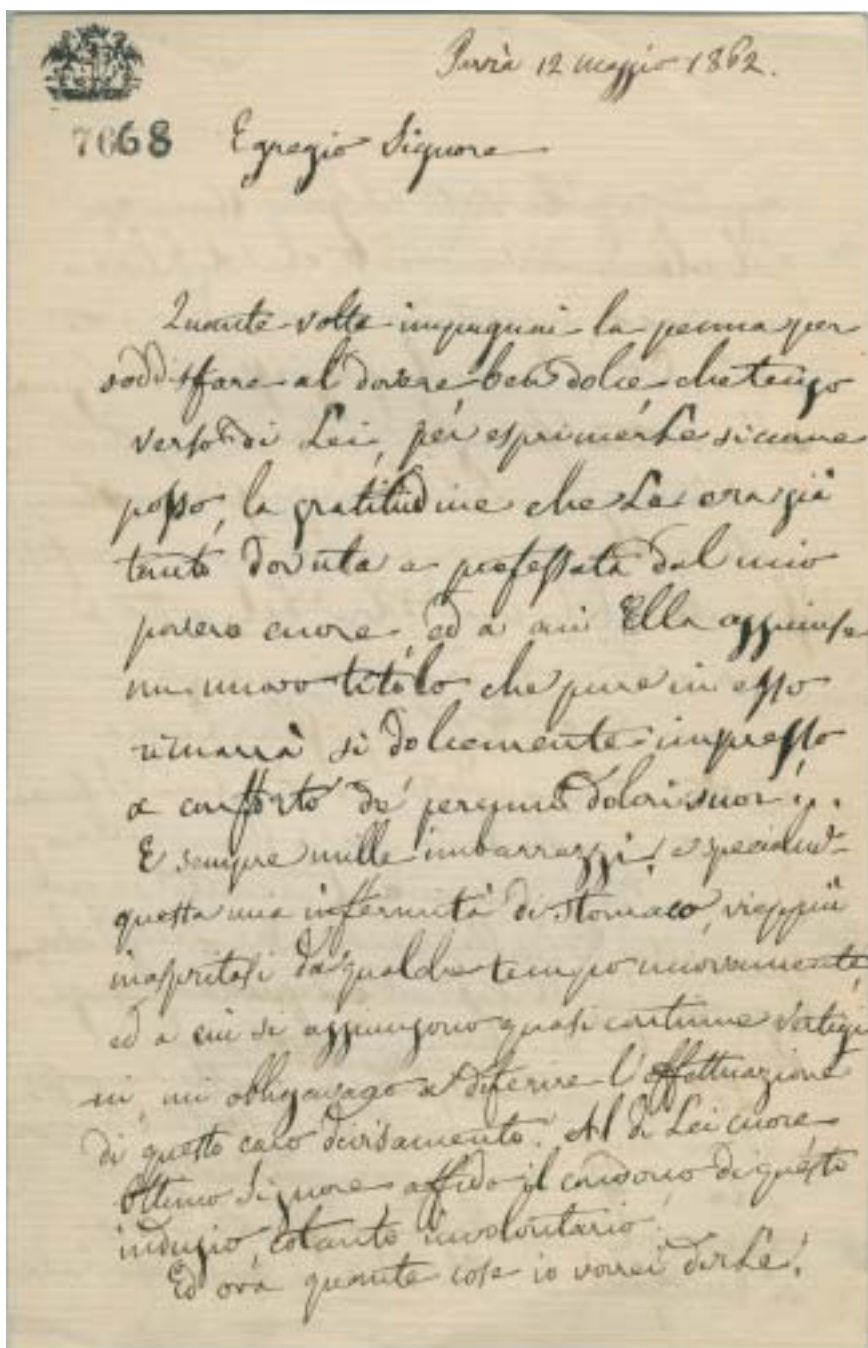 Pavia 12 maggio 1862.
7668
Egregio Signore
Quante volte impugnai la penna per
soddisfare al dovere ben dolce che tengo
verso di Lei, per esprimerLe siccome
posso, la gratitudine che Le era già
tanto dovuta e professata dal mio
povero cuore, ed a cui Ella aggiunse
un nuovo titolo che pure in esso
rimarrà sì dolcemente impresso
a conforto de' perenni dolori suoi!..
E sempre mille imbarazzi, e specialmte
questa mia infermità di stomaco, vieppiù
inaspritasi da qualche tempo nuovamente,
ed a cui si aggiungono quasi continue vertigi
ni, mi obbligavano a diferire l'effettuazione
di questo caro divisamento. Al di Lei cuore
Ottimo Signore affido il condono di questo
indugio, cotanto involontario!
Ed ora quante cose io vorrei dirLe!